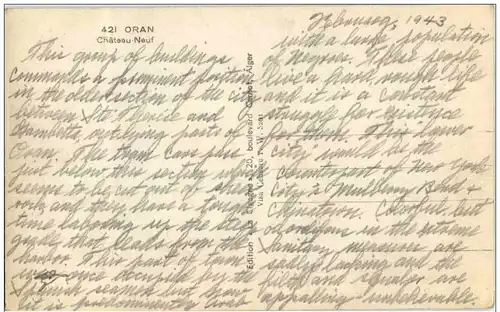 421 ORAN
Château-Neuf
This group of buildings
commands a prominent position
in the older section of the city
between St Eugene and
Gambetta, outlying parts of
Oran. The tram cars plus
just below this section
seems to be cut out of sheer
rock and they have a tough
time laboring up the steep
grade that leads from the
harbor. This part of town
was once occupied by the
Spanish seamen but now
it is predominantly Arab
Edition 20, boulevard Carnot, Alger
Visa Censure W. Sans
February, 1943
with a large population
of Negroes. These people
live a hard, rough life
and it is a constant
struggle for existence
for them. This lower
city would be the
counterpart of New York
City's Mulberry Bend &
Chinatown. Colorful, but
odoriferous in the extreme
sanitary measures are
sadly lacking and the
filth and squalor are
appalling - unbelievable.